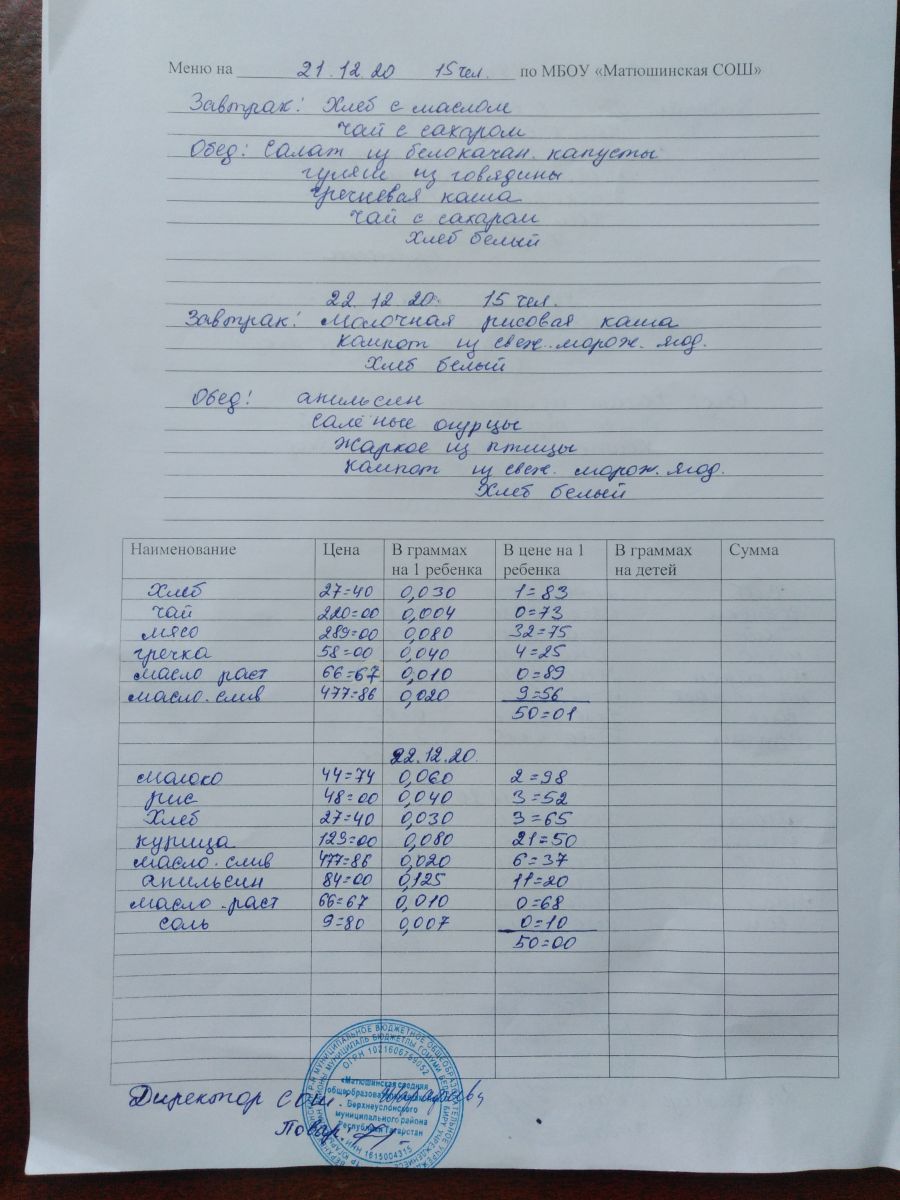 Меню на 21.12 20 15 чел. по МБОУ «Матюшинская СОШ»
Завтрак: Хлеб с маслом
чай с сахаром
Обед: Салат из белокачан. капусты
гуляш из говядины
гречневая каша
чай с сахаром
Хлеб белый
22. 12 20. 15 чел.
Завтрак: Молочная рисовая каша
компот из свеж. морож. ягод.
Хлеб белый
Обед: апильсин
салёные огурцы
жаркое из птицы
компот из свеж. морож. ягод.
Хлеб белый
Наименование Цена В граммах на 1 ребенка В цене на 1 ребенка В граммах на детей Сумма
Хлеб 27=40 0,030 1=83
чай 220=00 0,004 0=73
мясо 289=00 0,080 32=75
гречка 58=00 0,040 4=25
масло раст 66=67 0,010 0=89
масло.слив 477=86 0,020 9=56
50=01
22.12.20.
молоко 44=74 0,060 2=98
рис 48=00 0,040 3=52
Хлеб 27=40 0,030 3=65
курица 123=00 0,080 21=50
масло.слив 477=86 0,020 6=37
апильсин 84=00 0,125 11=20
масло.раст 66=67 0,010 0=68
соль 9=80 0,007 0=10
50=00
Директор СОШ:
Повар
ОГРН 1021606759052
«Матюшинская средняя
Верхнеуслонского
муниципального района
Республики Татарстан
ИНН 1615004315